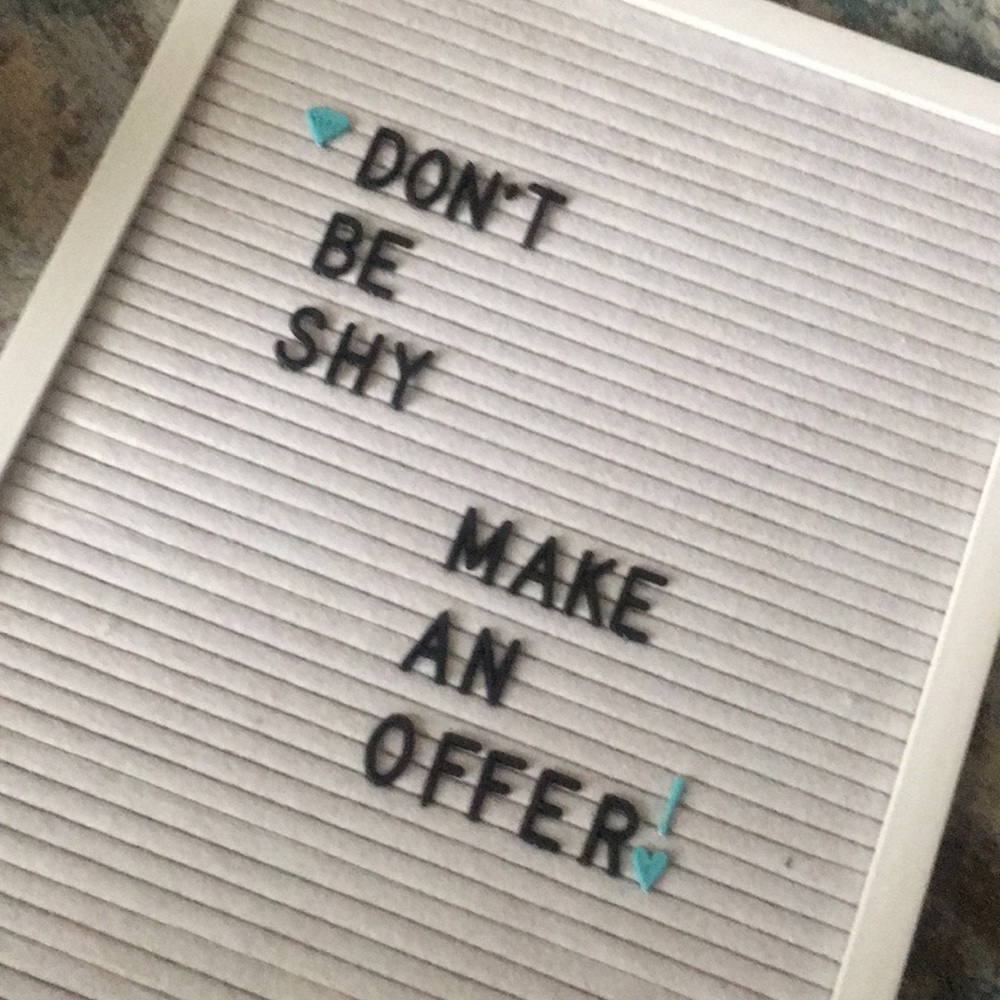 DON'T
BE
SHY
MAKE
AN
OFFER!